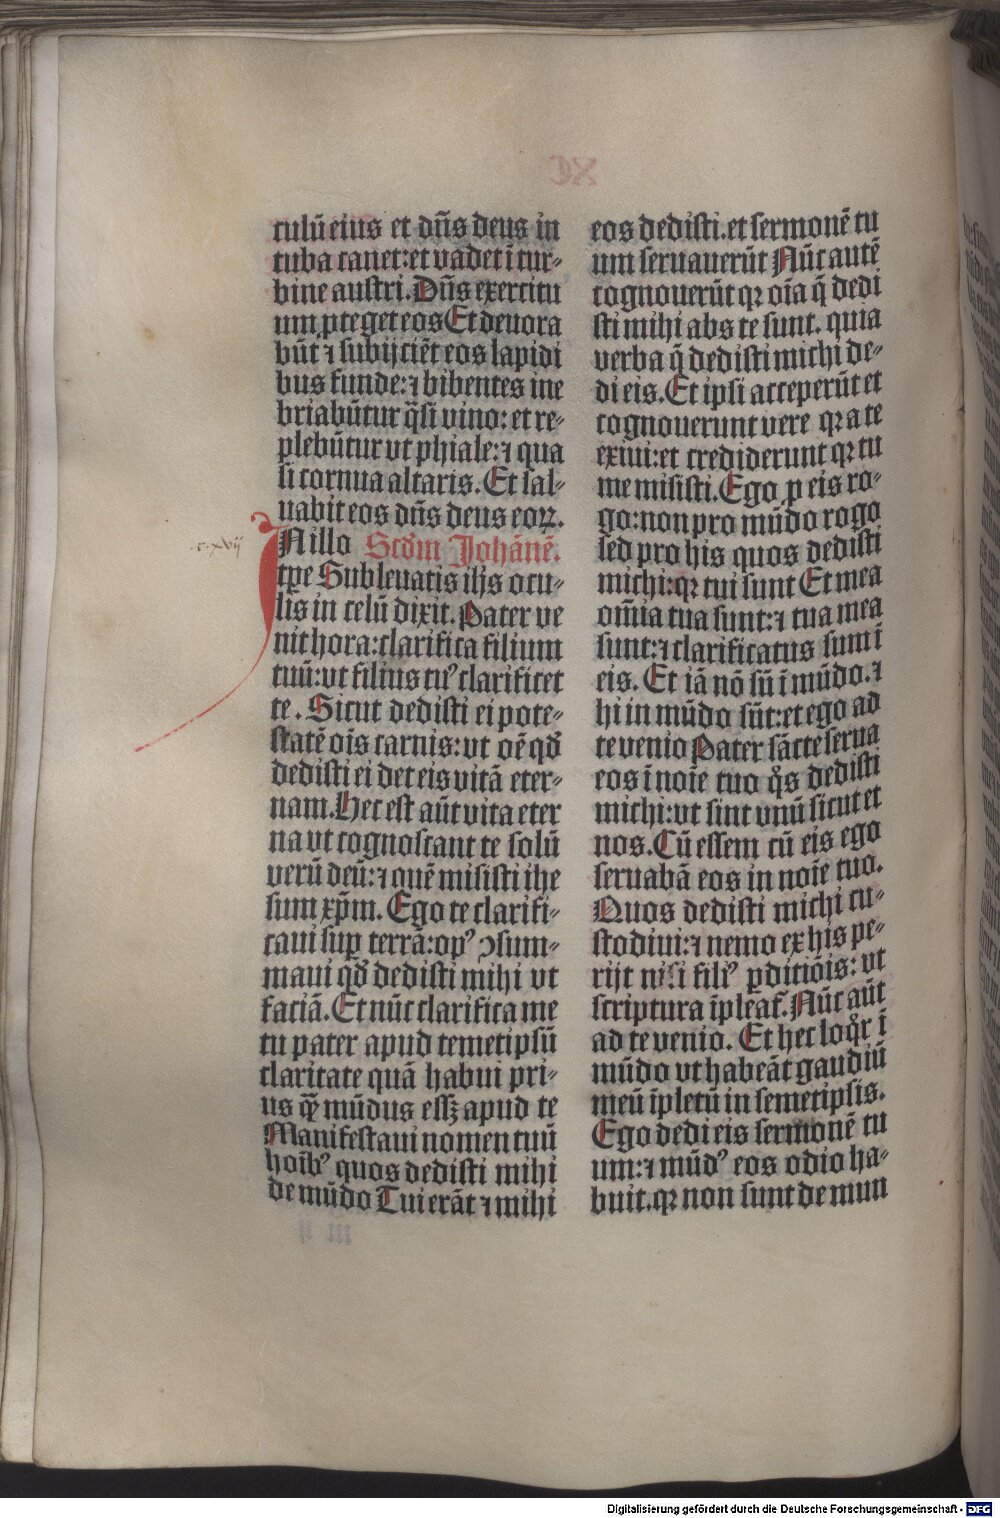 culū eius et dn̄s deus in
tuba canet: et vadet ī tur-
bine austri. Dn̄s exercitu
um ꝓteget eos Et deuora
būt ⁊ subijciēt eos lapidi
bus funde: ⁊ bibentes ine
briabūtur q̄si vino: et re-
plebūtur vt phiale: ⁊ qua
si cornua altaris. Et sal-
uabit eos dn̄s deus eoꝝ.
IN illo Scd̄m Johānē.
.c. xvij
tp̄e Subleuatis ih̄s ocu-
lis in celū dixit. Pater ve
nit hora: clarifica filium
tuū: vt filius tuꝰ clarificet
te. Sicut dedisti ei pote-
statē oīs carnis: vt oē qd̄
dedisti ei det eis vitā eter-
nam. Hec est aūt vita eter
na vt cognoscant te solū
verū deū: ⁊ quē misisti ihe
sum xp̄m. Ego te clarifi-
caui suꝑ terrā: opꝰ ↄsum-
maui qd̄ dedisti mihi vt
faciā. Et nūc clarifica me
tu pater apud temetipsū
claritate quā habui pri-
us q̄ꝫ mūdus essꝫ apud te
Manifestaui nomen tuū
hoībꝰ quos dedisti mihi
de mūdo Tui erāt ⁊ mihi
eos dedisti. et sermonē tu
um seruauerūt Nūc autē
cognouerūt qꝛ oīa q̄ dedi
sti mihi abs te sunt. quia
verba q̄ dedisti michi de-
di eis. Et ipsi acceperūt et
cognouerunt vere qꝛ a te
exiui: et crediderunt qꝛ tu
me misisti. Ego ꝓ eis ro-
go: non pro mūdo rogo
sed pro his quos dedisti
michi: qꝛ tui sunt Et mea
om̄ia tua sunt: ⁊ tua mea
sunt: ⁊ clarificatus sum ī
eis. Et iā nō sū ī mūdo. ⁊
hi in mūdo sūt: et ego ad
te venio Pater sācte serua
eos ī noīe tuo q̊s dedisti
michi: vt sint vnū sicut et
nos. Cū essem cū eis ego
seruabā eos in noīe tuo.
Quos dedisti michi cu-
stodiui: ⁊ nemo ex his pe-
rijt nisi filiꝰ ꝑditiōis: vt
scriptura īpleat᷑. Nūc aūt
ad te venio. Et hec loq̊r ī
mūdo vt habeāt gaudiū
meū īpletū in semetipsis.
Ego dedi eis sermonē tu
um: ⁊ mūdꝰ eos odio ha-
buit. qꝛ non sunt de mun
Digitalisierung gefördert durch die Deutsche Forschungsgemeinschaft - DFG